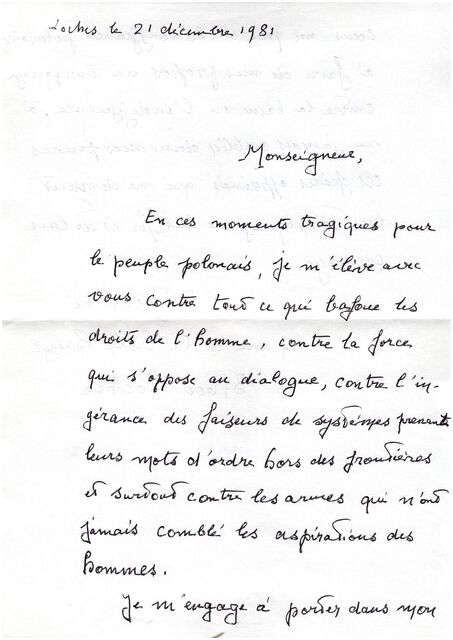 Loches le 21 décembre 1981
Monseigneur,
En ces moments tragiques pour
le peuple polonais, je m'élève avec
vous contre tout ce qui bafoue les
droits de l'homme, contre la force
qui s'oppose au dialogue, contre l'in-
gérance des faiseurs de systèmes prenant
leurs mots d'ordre hors des frontières
et surtout contre les armes qui n'ont
jamais comblé les aspirations des
hommes.
Je m'engage à porter dans mon